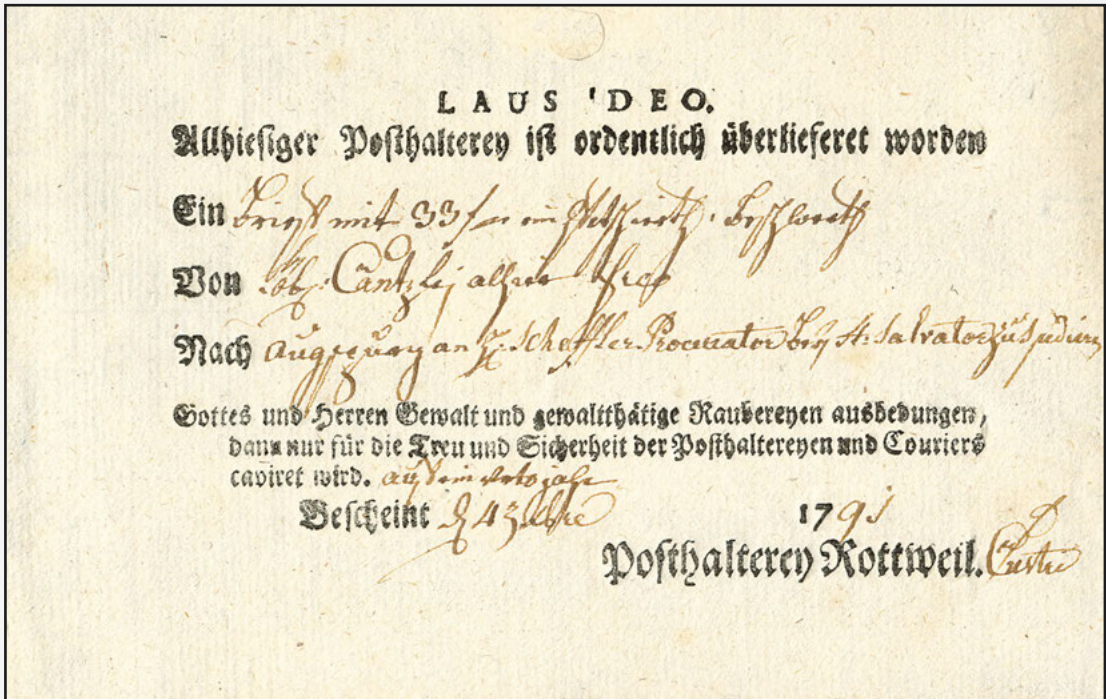 LAUS DEO.
Allhiesiger Posthalterey ist ordentlich überlieferet worden
Ein Brief mit 33 f
Von Löbl. Cantzley allhier
Nach Augspurg an H. Scheffler Procurator bey St. Salvator
Gottes und Herren Gewalt und gewaltthätige Raubereyen ausbedungen,
dann nur für die Treu und Sicherheit der Posthaltereyen und Couriers
caviret wird.
Bescheint 1791
Posthalterey Rottweil.